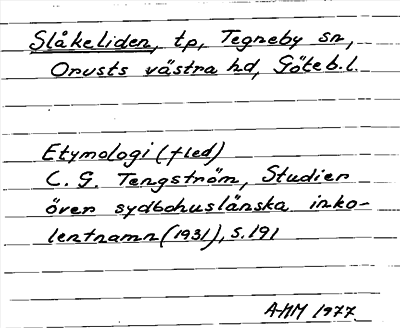 Slåkeliden, tp, Tegneby sn,
Orusts västra hd, Göteb.l.
Etymologi (fled)
C. G. Tengström, Studier
över sydbohuslänska inko-
lentnamn (1931), s. 191
AMM 1977